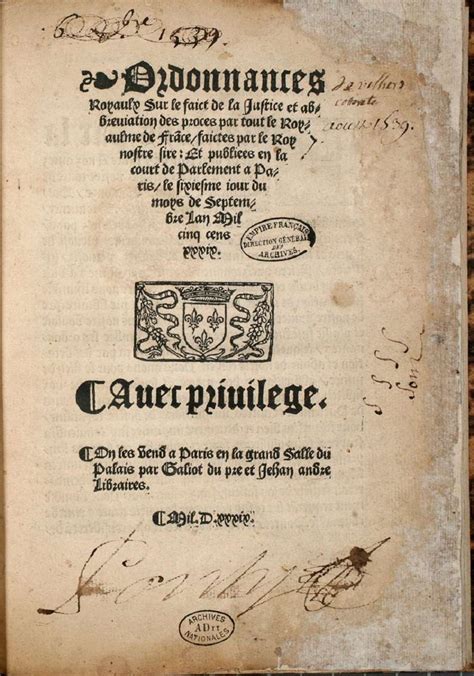 6 bre 1539.
Ordonnances
Royaulx Sur le faict de la Justice et ab⸗
breviation des proces par tout le Roy⸗
aulme de Frãce/ faictes par le Roy
nostre sire: Et publiees en la
court de Parlement a Pa⸗
ris/ le sixiesme iour du
moys de Septem⸗
bre Lan Mil
cinq cens
xxxix.
de villers
aoust 1539.
EMPIRE FRANÇAIS
DIRECTION GÉNÉRALE
DES
ARCHIVES.
¶Auec priuilege.
¶On les vend a Paris en la grand Salle du
Palais par Galiot du pre et Jehan andre
Libraires.
¶Mil.D.xxxix.
ARCHIVES
NATIONALES